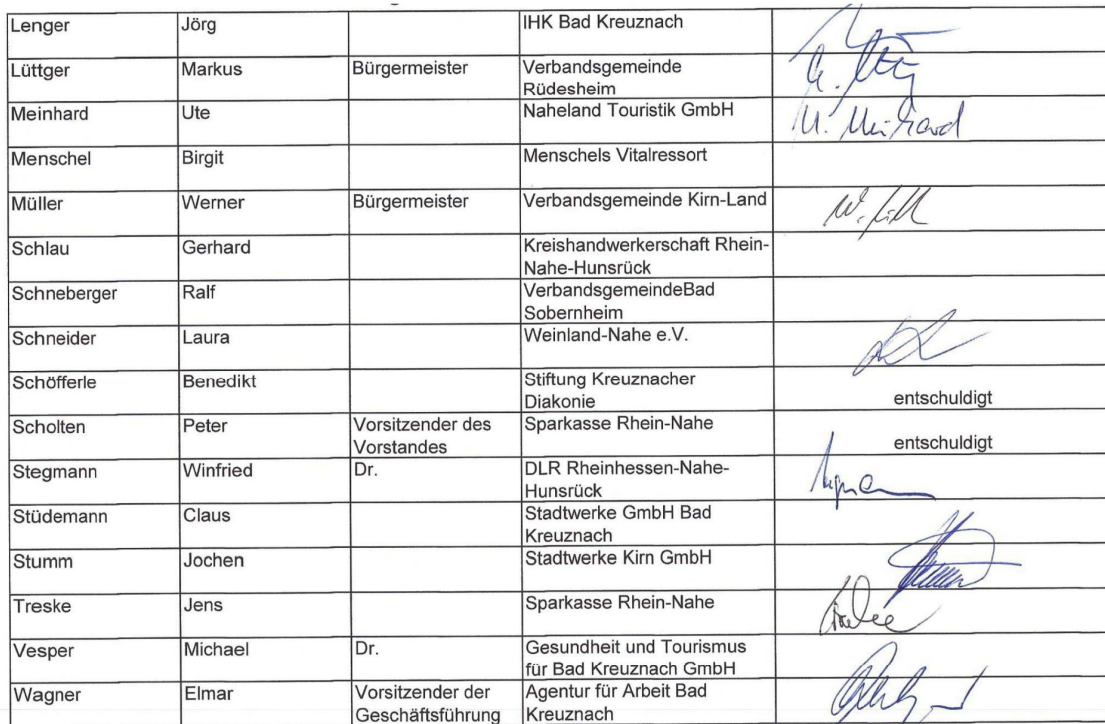 Lenger Jörg IHK Bad Kreuznach
Lüttger Markus Bürgermeister Verbandsgemeinde
Rüdesheim
Meinhard Ute Naheland Touristik GmbH U. Meinhard
Menschel Birgit Menschels Vitalressort
Müller Werner Bürgermeister Verbandsgemeinde Kirn-Land
Schlau Gerhard Kreishandwerkerschaft Rhein-
Nahe-Hunsrück
Schneberger Ralf VerbandsgemeindeBad
Sobernheim
Schneider Laura Weinland-Nahe e.V.
Schöfferle Benedikt Stiftung Kreuznacher
Diakonie entschuldigt
Scholten Peter Vorsitzender des Sparkasse Rhein-Nahe
Vorstandes entschuldigt
Stegmann Winfried Dr. DLR Rheinhessen-Nahe-
Hunsrück
Stüdemann Claus Stadtwerke GmbH Bad
Kreuznach
Stumm Jochen Stadtwerke Kirn GmbH
Treske Jens Sparkasse Rhein-Nahe
Vesper Michael Dr. Gesundheit und Tourismus
für Bad Kreuznach GmbH
Wagner Elmar Vorsitzender der Agentur für Arbeit Bad
Geschäftsführung Kreuznach